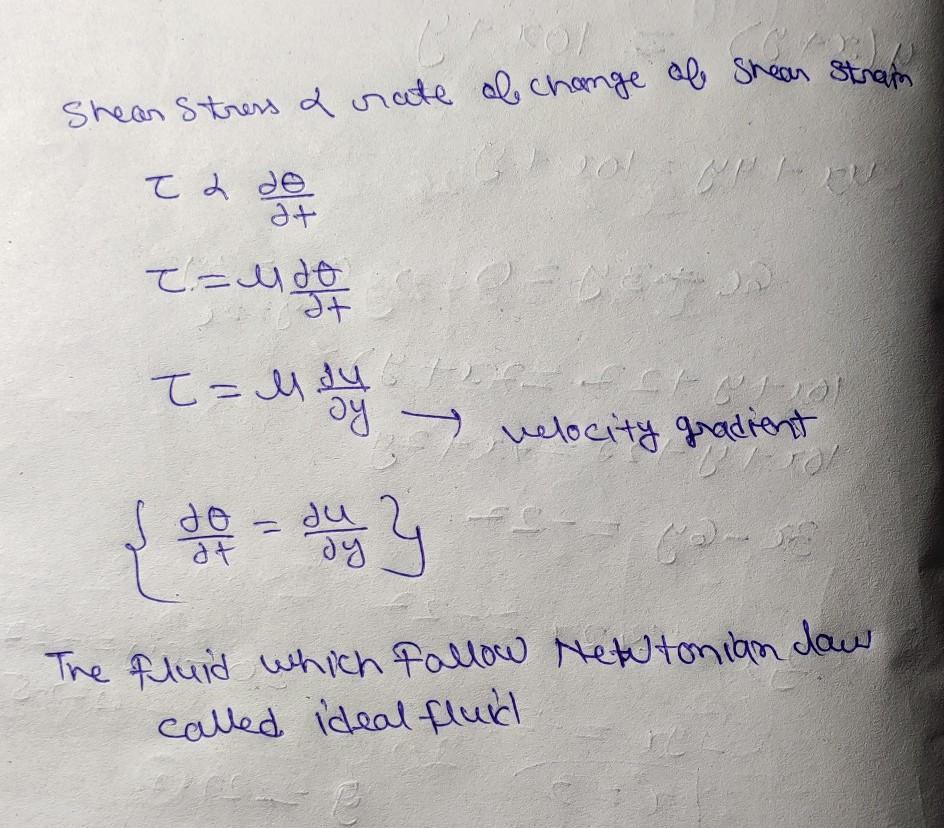 Shear Stress α rate of change of Shear Strain
τ α ∂θ/∂t
τ = μ ∂θ/∂t
τ = μ ∂u/∂y → velocity gradient
{ ∂θ/∂t = ∂u/∂y }
The fluid which follow Newtonian law
called ideal fluid